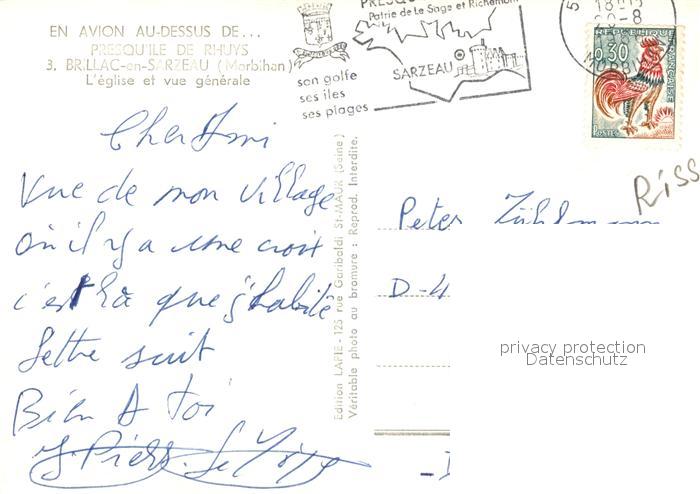 EN AVION AU-DESSUS DE...
PRESQU'ILE DE RHUYS
3. BRILLAC-en-SARZEAU (Morbihan)
L'église et vue générale
Patrie de Le Sage et Richemont
SARZEAU
son golfe
ses iles
ses plages
18H15
20-8
REPUBLIQUE
FRANÇAISE
0,30
POSTES
Cher Ami
Vue de mon village
où il y a une croix
c'est là que j'habite
Lettre suit
Bien A toi
Edition LAPIE - 125 rue Garibaldi, St-MAUR (Seine)
Véritable photo au bromure : Reprod. Interdite.
Riss
Peter
D-4
privacy protection
Datenschutz